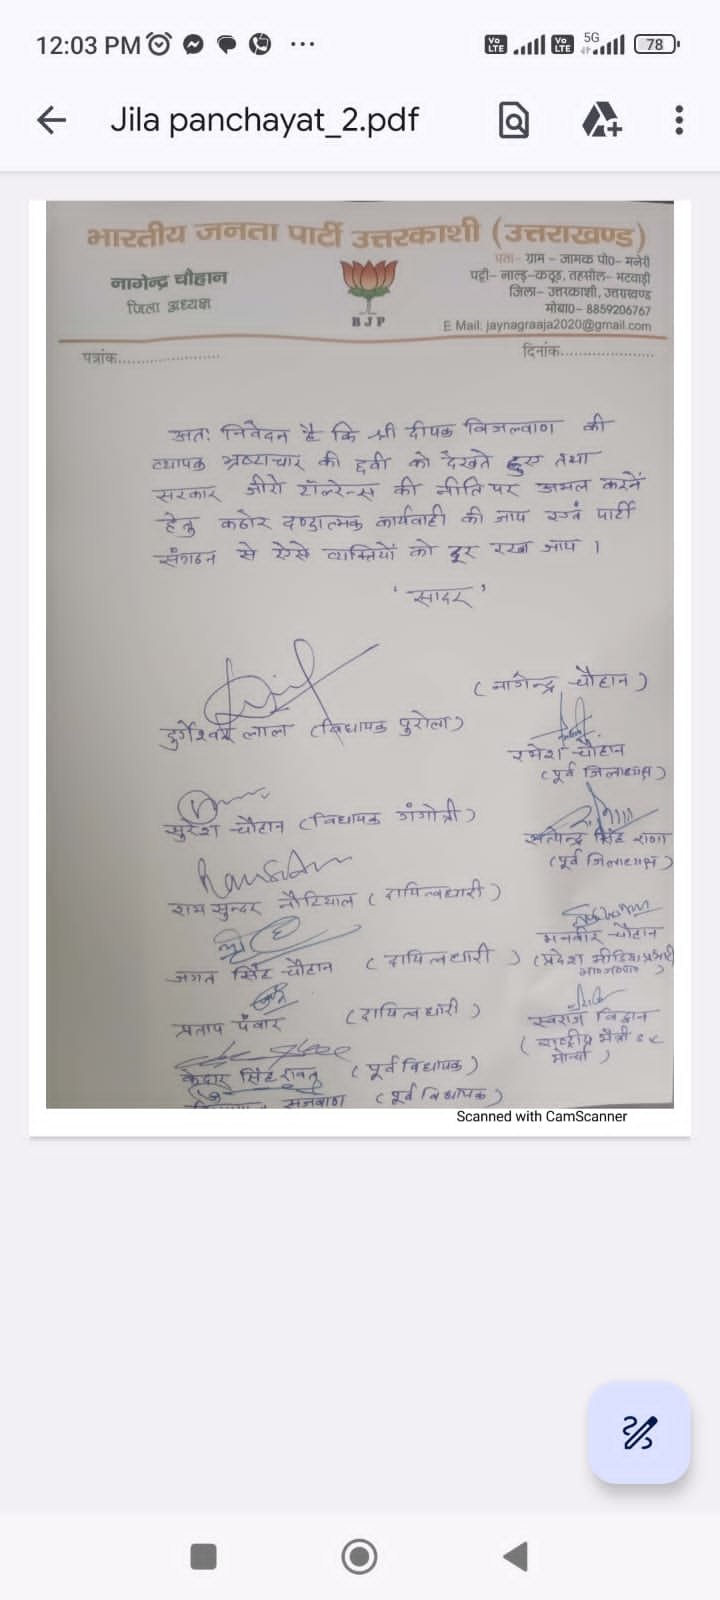 12:03 PM
Vo LTE
Vo LTE
5G
78
Jila panchayat_2.pdf
भारतीय जनता पार्टी उत्तरकाशी (उत्तराखण्ड)
नागेन्द्र चौहान
जिला अध्यक्ष
BJP
पता- ग्राम - जामक पो0- मनेरी
पट्टी- नाल्ड-कठूड, तहसील- भटवाड़ी
जिला- उत्तरकाशी, उत्तराखण्ड
मोबा0- 8859206767
E Mail: jaynagraaja2020@gmail.com
पत्रांक........................
दिनांक......................
अतः निवेदन है कि श्री दीपक बिजल्वाण की
व्यापक भ्रष्टाचार की छवी को देखते हुए तथा
सरकार जीरो टॉलरेन्स की नीति पर अमल करनें
हेतु कठोर दण्डात्मक कार्यवाही की जाय एवं पार्टी
संगठन से ऐसे व्यक्तियों को दूर रखा जाय ।
' सादर '
( नागेन्द्र चौहान )
दुर्गेश्वर लाल (विधायक पुरोला)
रमेश चौहान
(पूर्व जिलाध्यक्ष)
सुरेश चौहान (विधायक गंगोत्री)
सत्येन्द्र सिंह राणा
(पूर्व जिलाध्यक्ष)
राम सुन्दर नौटियाल ( दायित्वधारी )
मनवीर चौहान
जगत सिंह चौहान ( दायित्वधारी )
(प्रदेश मीडिया प्रभारी
भाजपा )
प्रताप पंवार (दायित्वधारी )
स्वराज विद्वान
( राष्ट्रीय मंत्री SC
मोर्चा )
केदार सिंह रावत ( पूर्व विधायक )
सजवाण (पूर्व विधायक)
Scanned with CamScanner